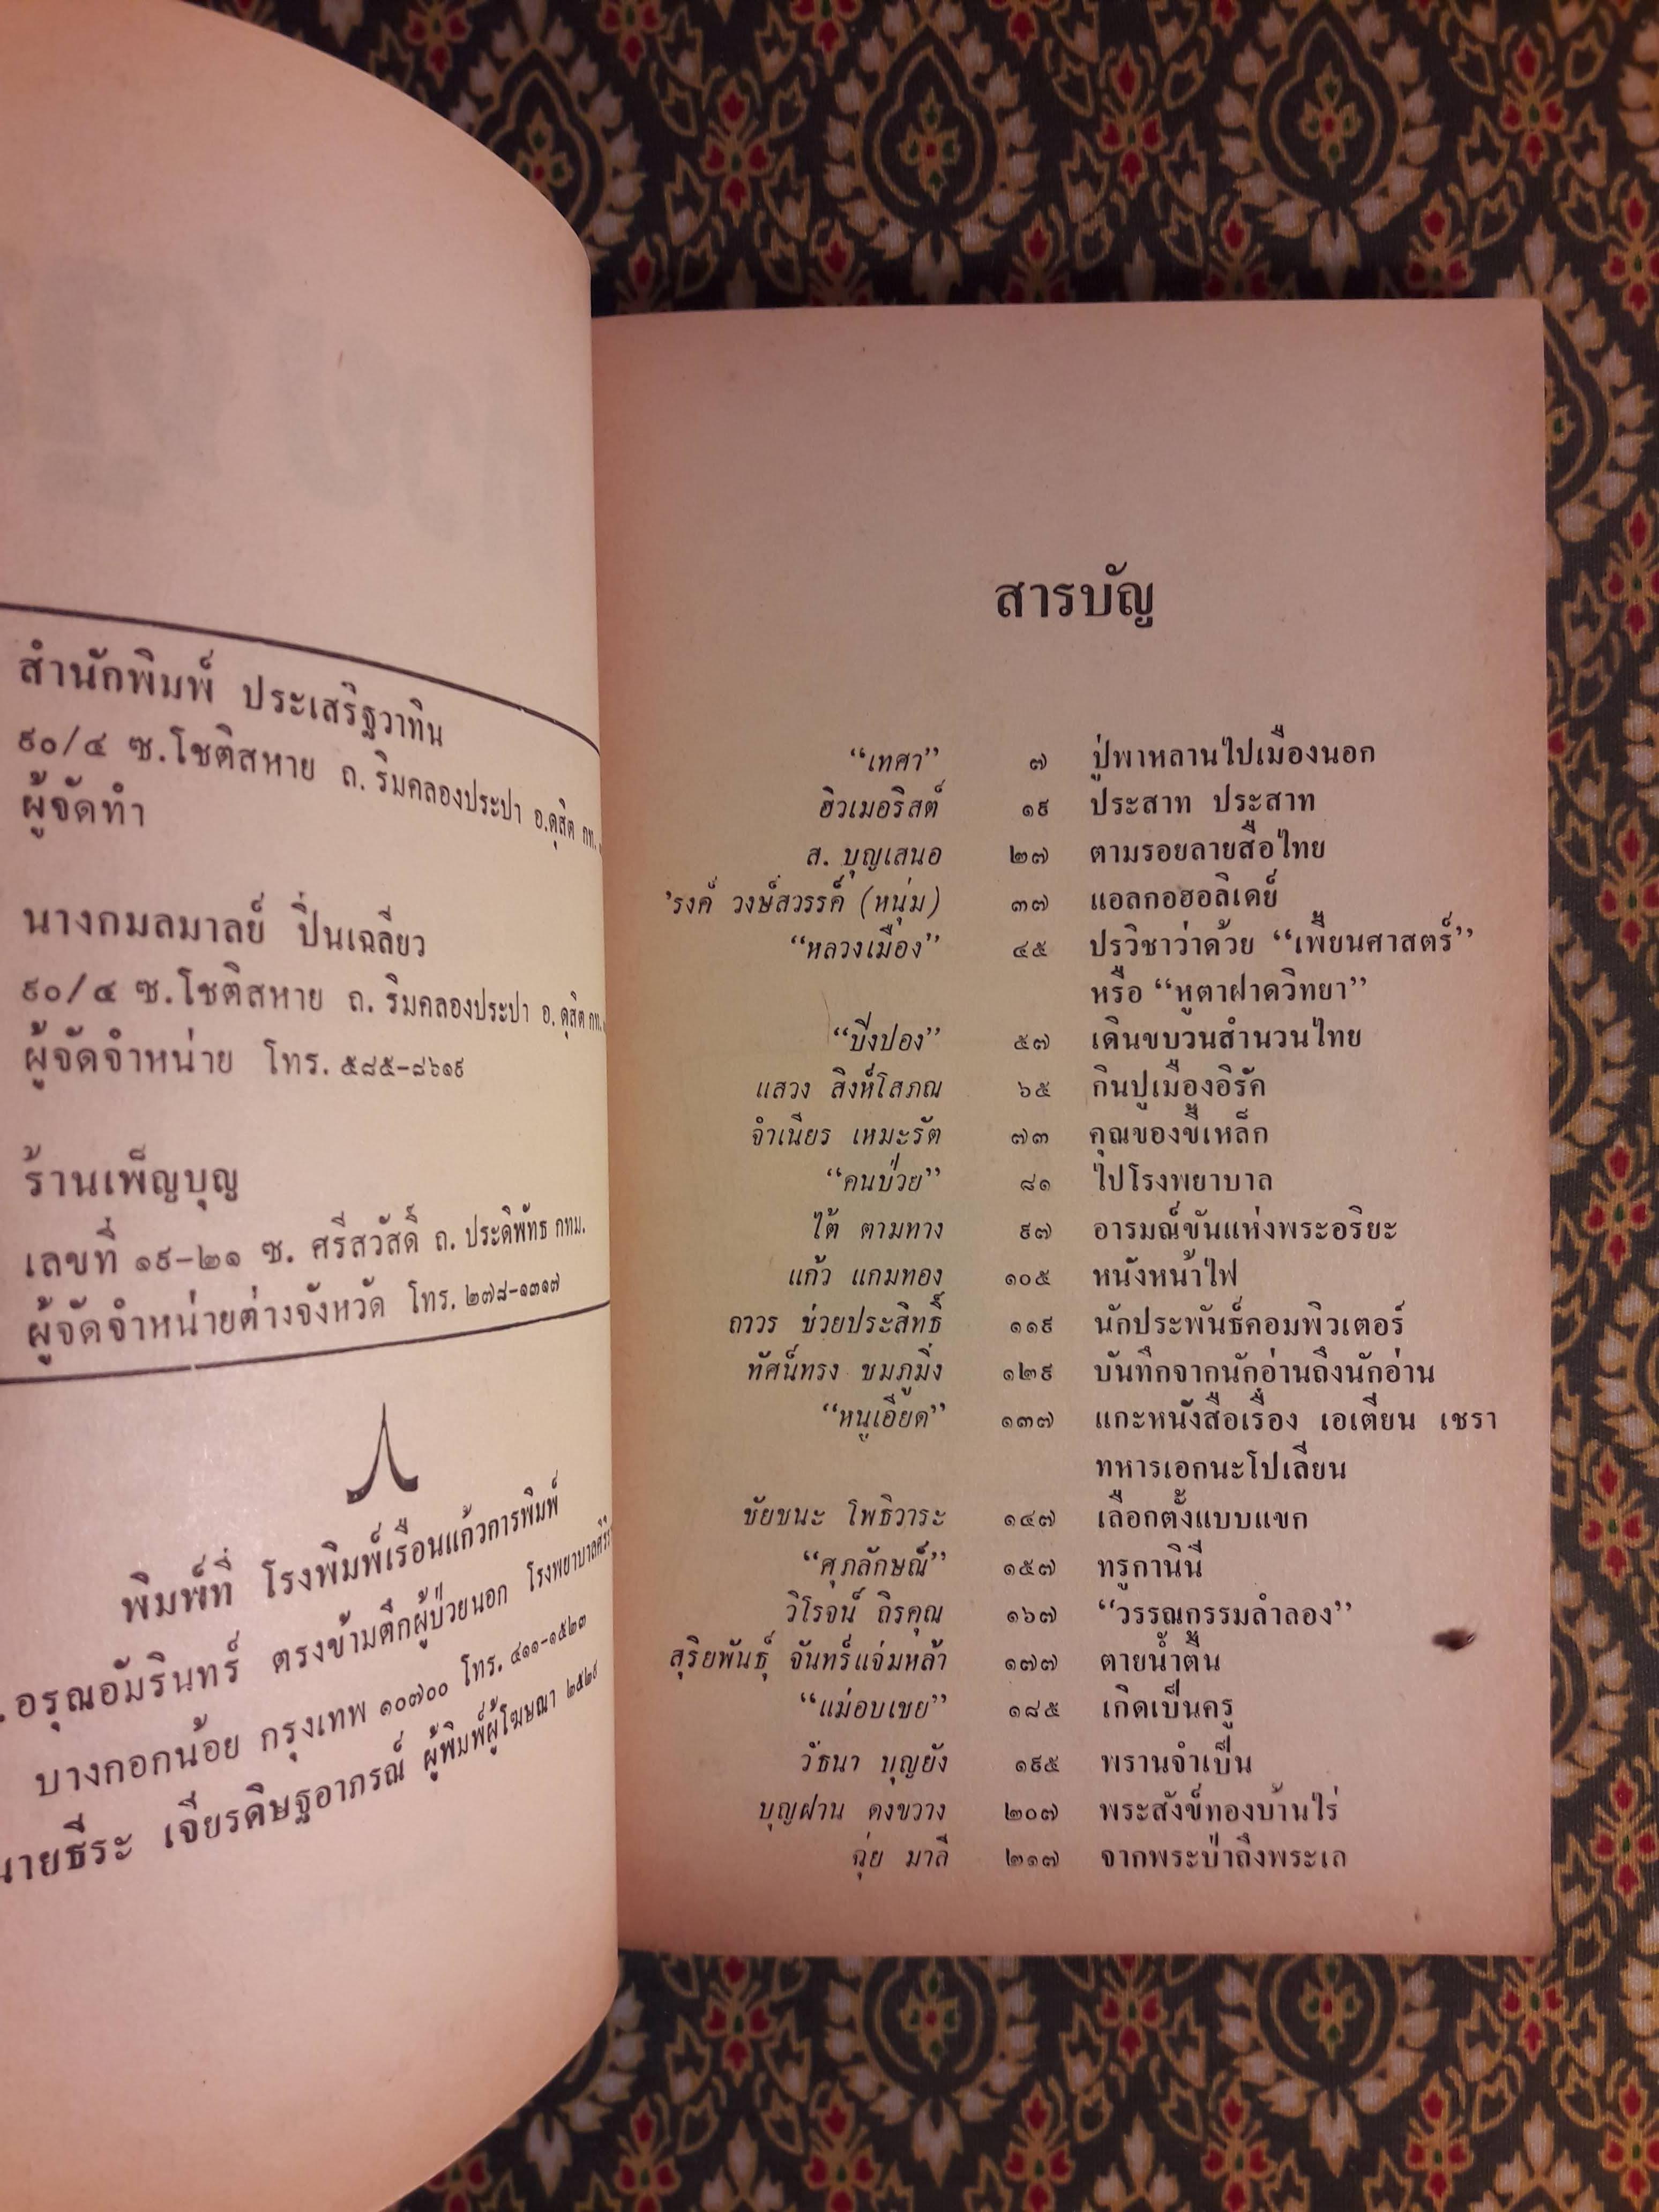 สำนักพิมพ์ ประเสริฐวาทิน
๙๐/๔ ซ.โชติสหาย ถ. ริมคลองประปา อ.ดุสิต กท.
ผู้จัดทำ
นางกมลมาลย์ ปิ่นเฉลียว
๙๐/๔ ซ.โชติสหาย ถ. ริมคลองประปา อ. ดุสิต กท.
ผู้จัดจำหน่าย โทร. ๕๘๕-๘๖๑๙
ร้านเพ็ญบุญ
เลขที่ ๑๙-๒๑ ซ. ศรีสวัสดิ์ ถ. ประดิพัทธ กทม.
ผู้จัดจำหน่ายต่างจังหวัด โทร. ๒๗๘-๑๓๑๗
พิมพ์ที่ โรงพิมพ์เรือนแก้วการพิมพ์
. อรุณอัมรินทร์ ตรงข้ามตึกผู้ป่วยนอก โรงพยาบาล
บางกอกน้อย กรุงเทพ ๑๐๗๐๐ โทร. ๔๑๑-๑๕๒๓
นายธีระ เจียรดิษฐอาภรณ์ ผู้พิมพ์ผู้โฆษณา ๒๕๒๙
สารบัญ
“เทศา” ๗ ปู่พาหลานไปเมืองนอก
ฮิวเมอริสต์ ๑๙ ประสาท ประสาท
ส. บุญเสนอ ๒๗ ตามรอยลายสือไทย
’รงค์ วงษ์สวรรค์ (หนุ่ม) ๓๗ แอลกอฮอลิเดย์
“หลวงเมือง” ๔๕ ปรวิชาว่าด้วย “เพี้ยนศาสตร์”
หรือ “หูตาฝาดวิทยา”
“บิ๋งปอง” ๕๗ เดินขบวนสำนวนไทย
แสวง สิงห์โสภณ ๖๕ กินปูเมืองอิรัค
จำเนียร เหมะรัต ๗๓ คุณของขี้เหล็ก
“คนป่วย” ๘๑ ไปโรงพยาบาล
ไต้ ตามทาง ๙๗ อารมณ์ขันแห่งพระอริยะ
แก้ว แกมทอง ๑๐๕ หนังหน้าไฟ
ถาวร ช่วยประสิทธิ์ ๑๑๙ นักประพันธ์คอมพิวเตอร์
ทัศน์ทรง ชมภูมิ่ง ๑๒๙ บันทึกจากนักอ่านถึงนักอ่าน
“หนูเอียด” ๑๓๗ แกะหนังสือเรื่อง เอเตียน เชรา
ทหารเอกนะโปเลียน
ชัยชนะ โพธิวาระ ๑๔๗ เลือกตั้งแบบแขก
“ศุภลักษณ์” ๑๕๗ ทรูกานินี
วิโรจน์ ถิรคุณ ๑๖๗ “วรรณกรรมลำลอง”
สุริยพันธุ์ จันทร์แจ่มหล้า ๑๗๗ ตายน้ำตื้น
“แม่อบเชย” ๑๘๕ เกิดเป็นครู
วัธนา บุญยัง ๑๙๕ พรานจำเป็น
บุญฝาน คงขวาง ๒๐๗ พระสังข์ทองบ้านไร่
ฉุ่ย มาลี ๒๑๗ จากพระป่าถึงพระเถ